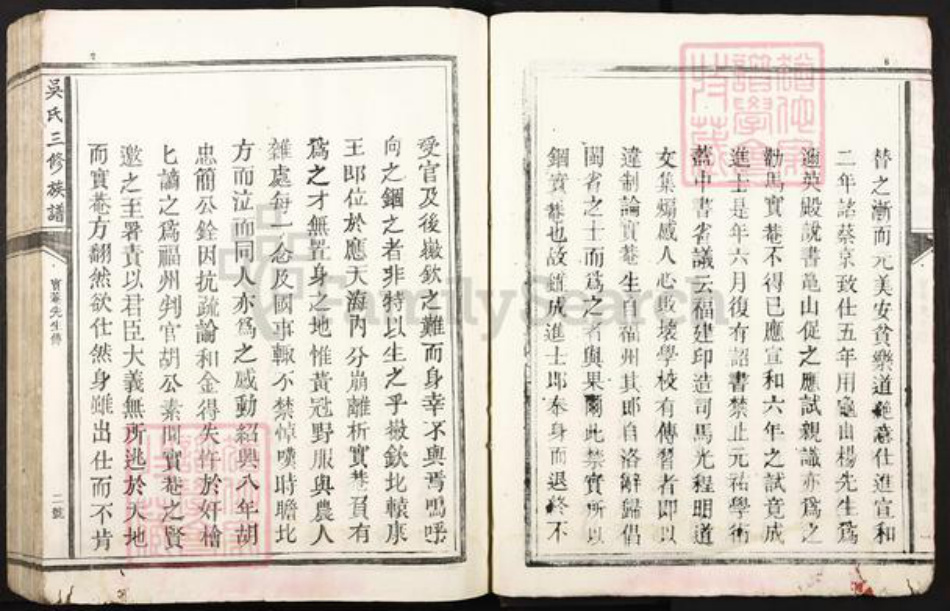 替之漸而元美安貧樂道絶意仕進宣和
二年詔蔡京致仕五年用龜山楊先生爲
邇英殿說書龜山促之應試親識亦爲之
勸馬實菴不得已應宣和六年之試竟成
進士是年六月復有詔書禁止元祐學術
中書省議云福建印造司馬光程明道
文集煽惑人心敗壞學校有傳習者即以
違制論實菴生自福州其師自洛歸倡
閩省之士而爲之者與果爾此禁實所以
錮實菴也故雖成進士即奉身而退終不
受官及後徽欽之難而身幸不與焉嗚呼
向之錮之者非特以生之乎徽欽北轅康
王即位於應天海內分崩離析實菴負有
爲之才無置身之地惟黃冠野服與農人
雜處每一念及國事輒不禁悼嘆時瞻北
方而泣而同人亦爲之感動紹興八年胡
忠簡公銓因抗疏論和金得失忤於奸檜
匕謫之爲福州判官胡公素聞實菴之賢
邀之至署責以君臣大義無所逃於天地
而實菴方翻然欲仕然身雖出仕而不肯
吳氏三修族譜
實菴先生傳
二號
FamilySearch